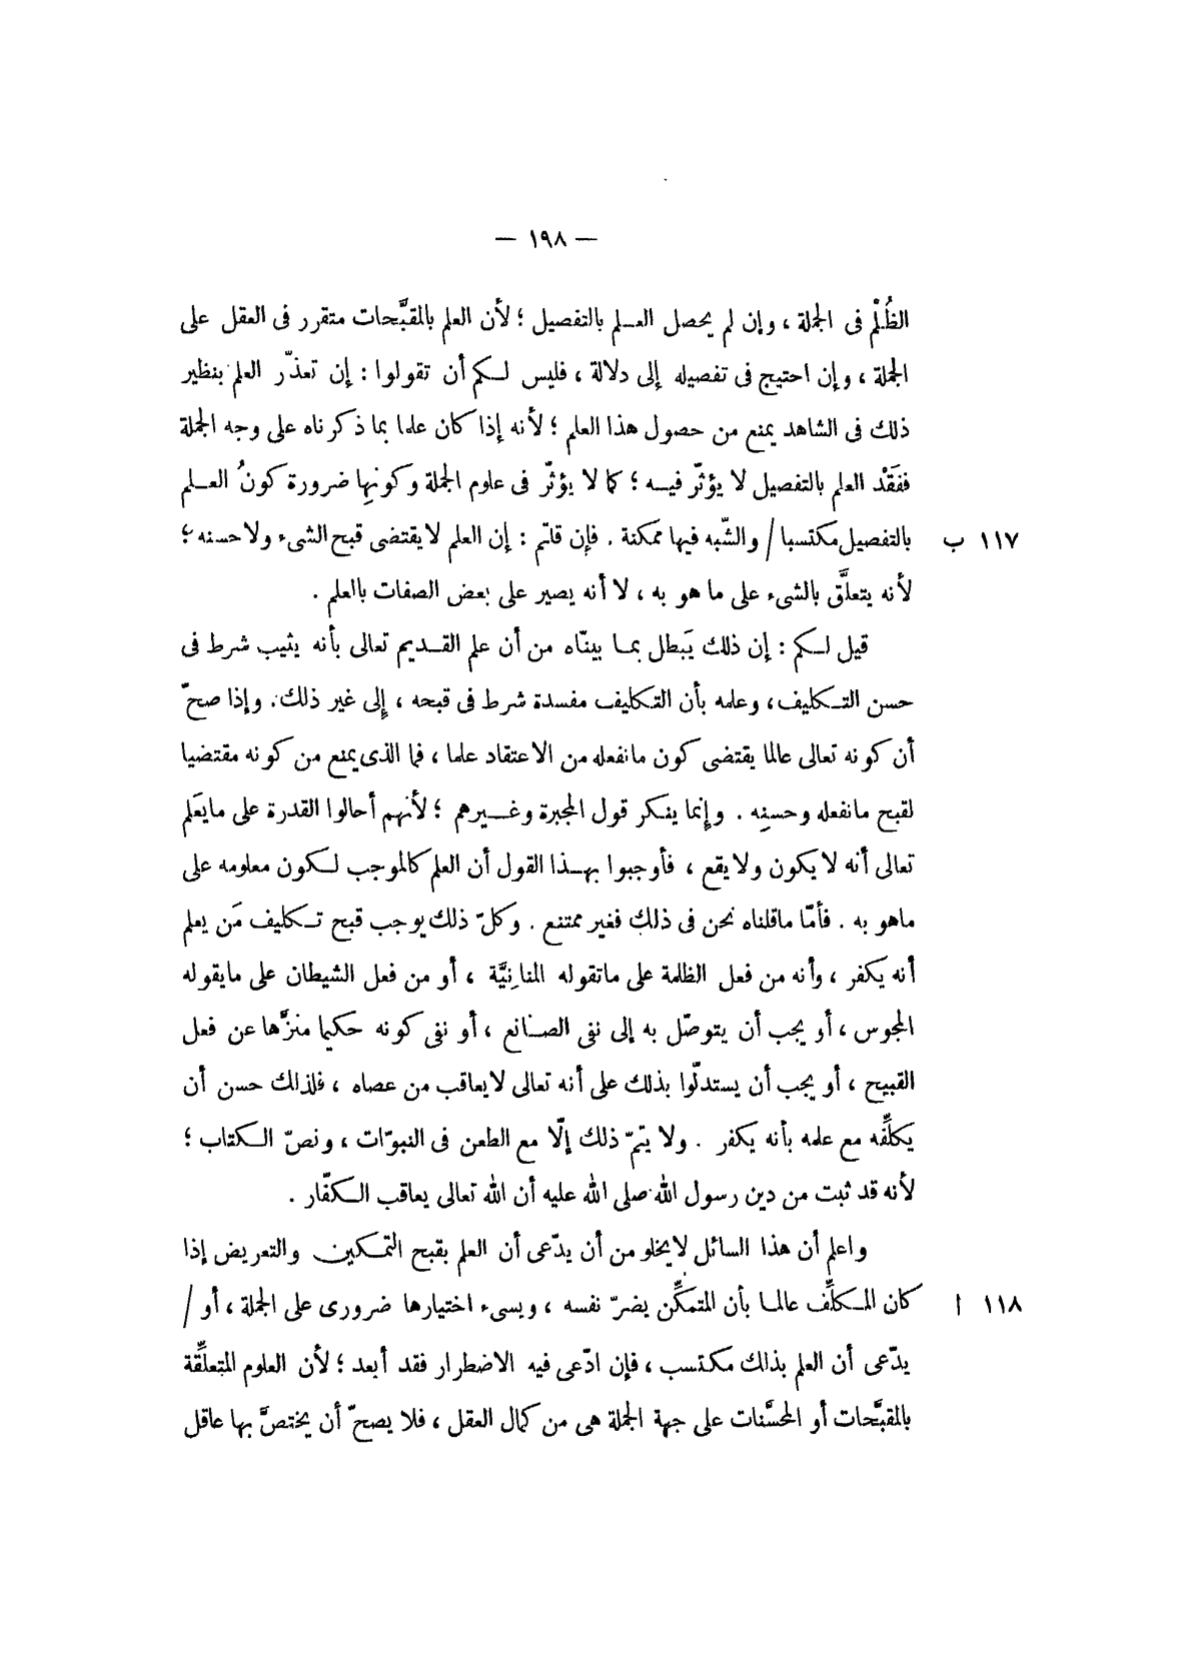 — ١٩٨ —
الظُلْم فى الجملة ، وإن لم يحصل العلم بالتفصيل ؛ لأن العلم بالمقبَّحات متقرر فى العقل على
الجملة ، وإن احتيج فى تفصيله إلى دلالة ، فليس لكم أن تقولوا : إن تعذّر العلم بنظير
ذلك فى الشاهد يمنع من حصول هذا العلم ؛ لأنه إذا كان علما بما ذكرناه على وجه الجملة
ففَقْد العلم بالتفصيل لا يؤثّر فيه ؛ كما لا يؤثّر فى علوم الجملة وكونِها ضرورة كونُ العلم
بالتفصيل مكتسبا / والشّبه فيها ممكنة . فإن قلتم : إن العلم لا يقتضى قبح الشىء ولا حسنه ؛ ١١٧ ب
لأنه يتعلَّق بالشىء على ما هو به ، لا أنه يصير على بعض الصفات بالعلم .
قيل لكم : إن ذلك يَبطل بما بينّاه من أن علم القديم تعالى بأنه يثيب شرط فى
حسن التكليف ، وعلمه بأن التكليف مفسدة شرط فى قبحه ، إلى غير ذلك . وإذا صحّ
أن كونه تعالى عالما يقتضى كون ما نفعله من الاعتقاد علما ، فما الذى يمنع من كونه مقتضيا
لقبح ما نفعله وحسنِه . وإنما ينكر قول المجبرة وغيرهم ؛ لأنهم أحالوا القدرة على ما يَعلم
تعالى أنه لا يكون ولا يقع ، فأوجبوا بهذا القول أن العلم كالموجب لكون معلومه على
ماهو به . فأمّا ماقلناه نحن فى ذلك فغير ممتنع . وكلّ ذلك يوجب قبح تكليف مَن يعلم
أنه يكفر ، وأنه من فعل الظلمة على ماتقوله المنانِيَّة ، أو من فعل الشيطان على مايقوله
المجوس ، أو يجب أن يتوصّل به إلى نفى الصانع ، أو نفى كونه حكيما منزَّها عن فعل
القبيح ، أو يجب أن يستدلّوا بذلك على أنه تعالى لا يعاقب من عصاه ، فلذلك حسن أن
يكلِّفه مع علمه بأنه يكفر . ولا يتمّ ذلك إلّا مع الطعن فى النبوّات ، ونصّ الكتاب ؛
لأنه قد ثبت من دين رسول الله صلى الله عليه أن الله تعالى يعاقب الكفّار .
واعلم أن هذا السائل لا يخلو من أن يدّعى أن العلم بقبح التمكين والتعريض إذا
كان المكلِّف عالما بأن المتمكِّن يضرّ نفسه ، ويسىء اختيارها ضرورى على الجملة ، أو / ١١٨ ا
يدّعى أن العلم بذلك مكتسب ، فإن ادّعى فيه الاضطرار فقد أبعد ؛ لأن العلوم المتعلِّقة
بالمقبَّحات أو المحسَّنات على جهة الجملة هى من كمال العقل ، فلا يصحّ أن يختصَّ بها عاقل